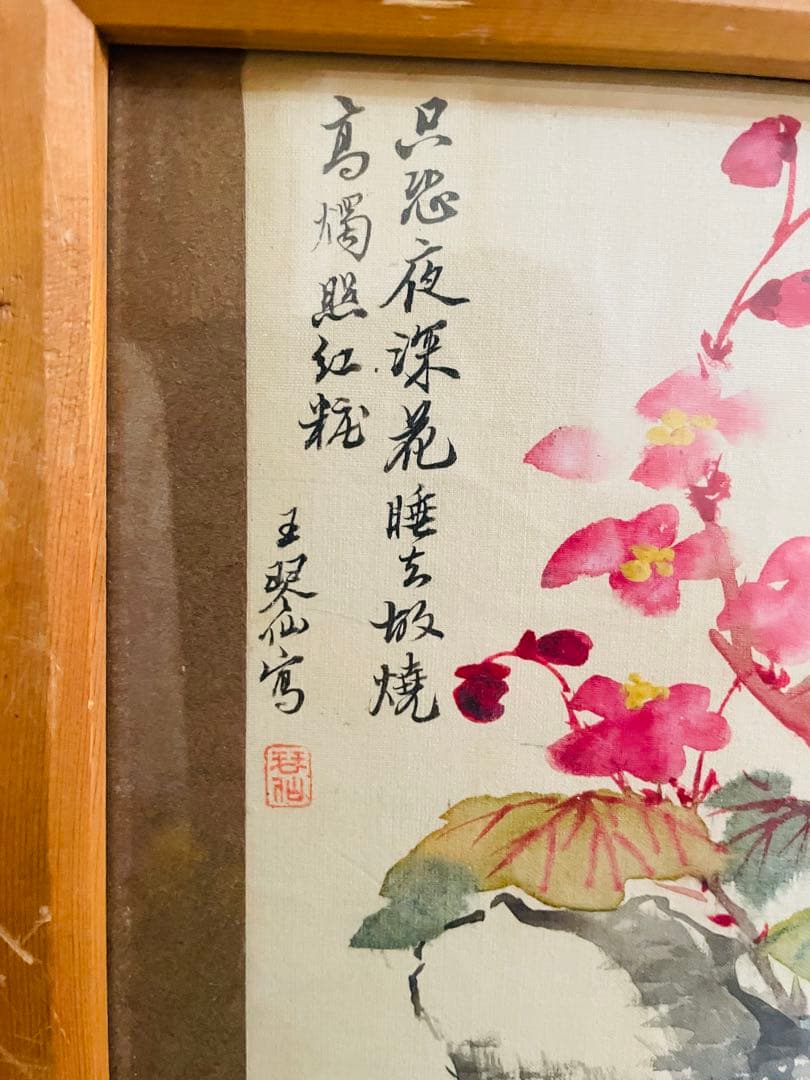 只恐夜深花睡去故燒
高燭照紅粧
王琴仙寫
琴仙